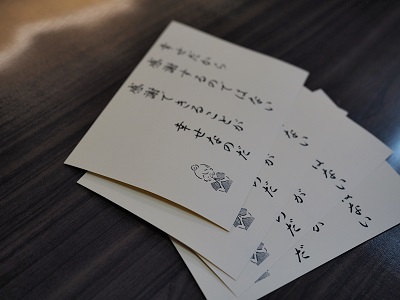 幸せだから
感謝するのではない
感謝できることが
幸せなのだ
ない
が
だ
はない
が
だ
はない
か
だ